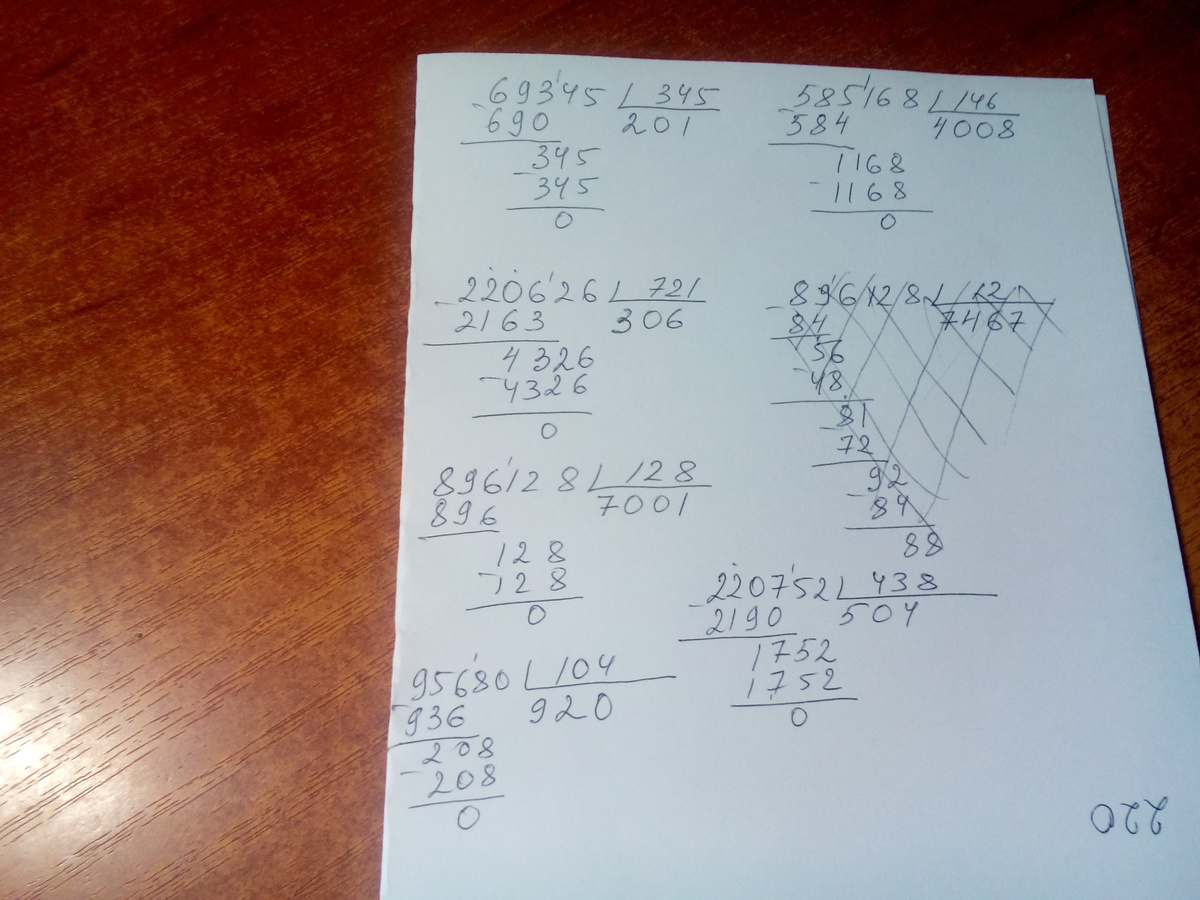 69345 345
690 201
345
345
0
585168 146
584 4008
1168
1168
0
220626 721
2163 306
4326
4326
0
896128 12
84 7467
56
48
81
72
92
84
88
896128 128
896 7001
128
128
0
220752 438
2190 504
1752
1752
0
95680 104
936 920
208
208
0
220